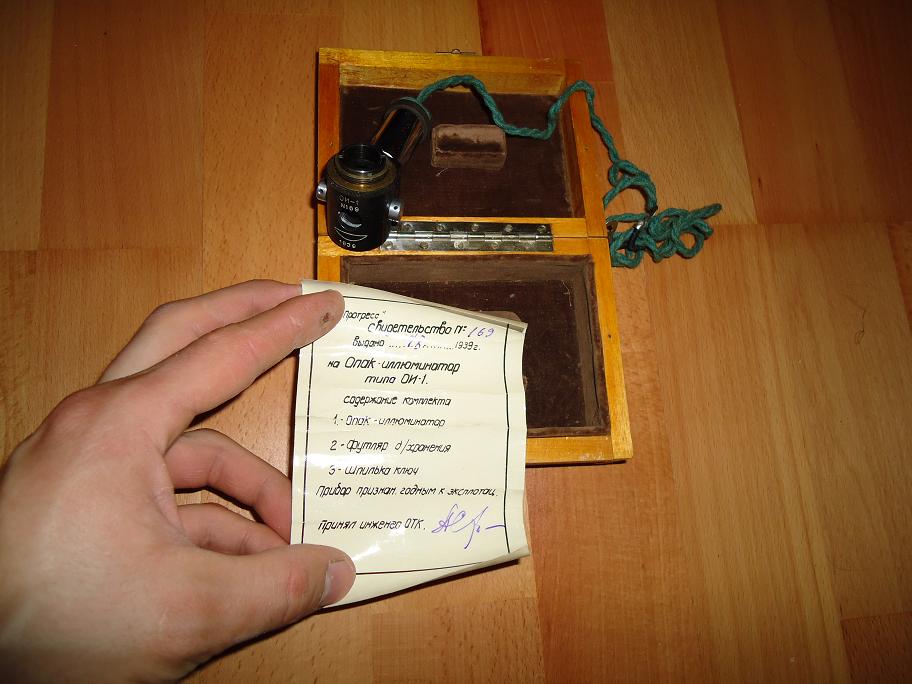 ОИ-1
№169
1939
Прогресс"
Свидетельство № 169
выдано .... IX ........1939г.
на Опак-иллюминатор
типа ОИ-1.
содержание комплекта
1.- Опак-иллюминатор
2 - Футляр д/хранения
3 - шпилька ключ
Прибор признан. годным к эксплотац.
Принял инженер ОТК.